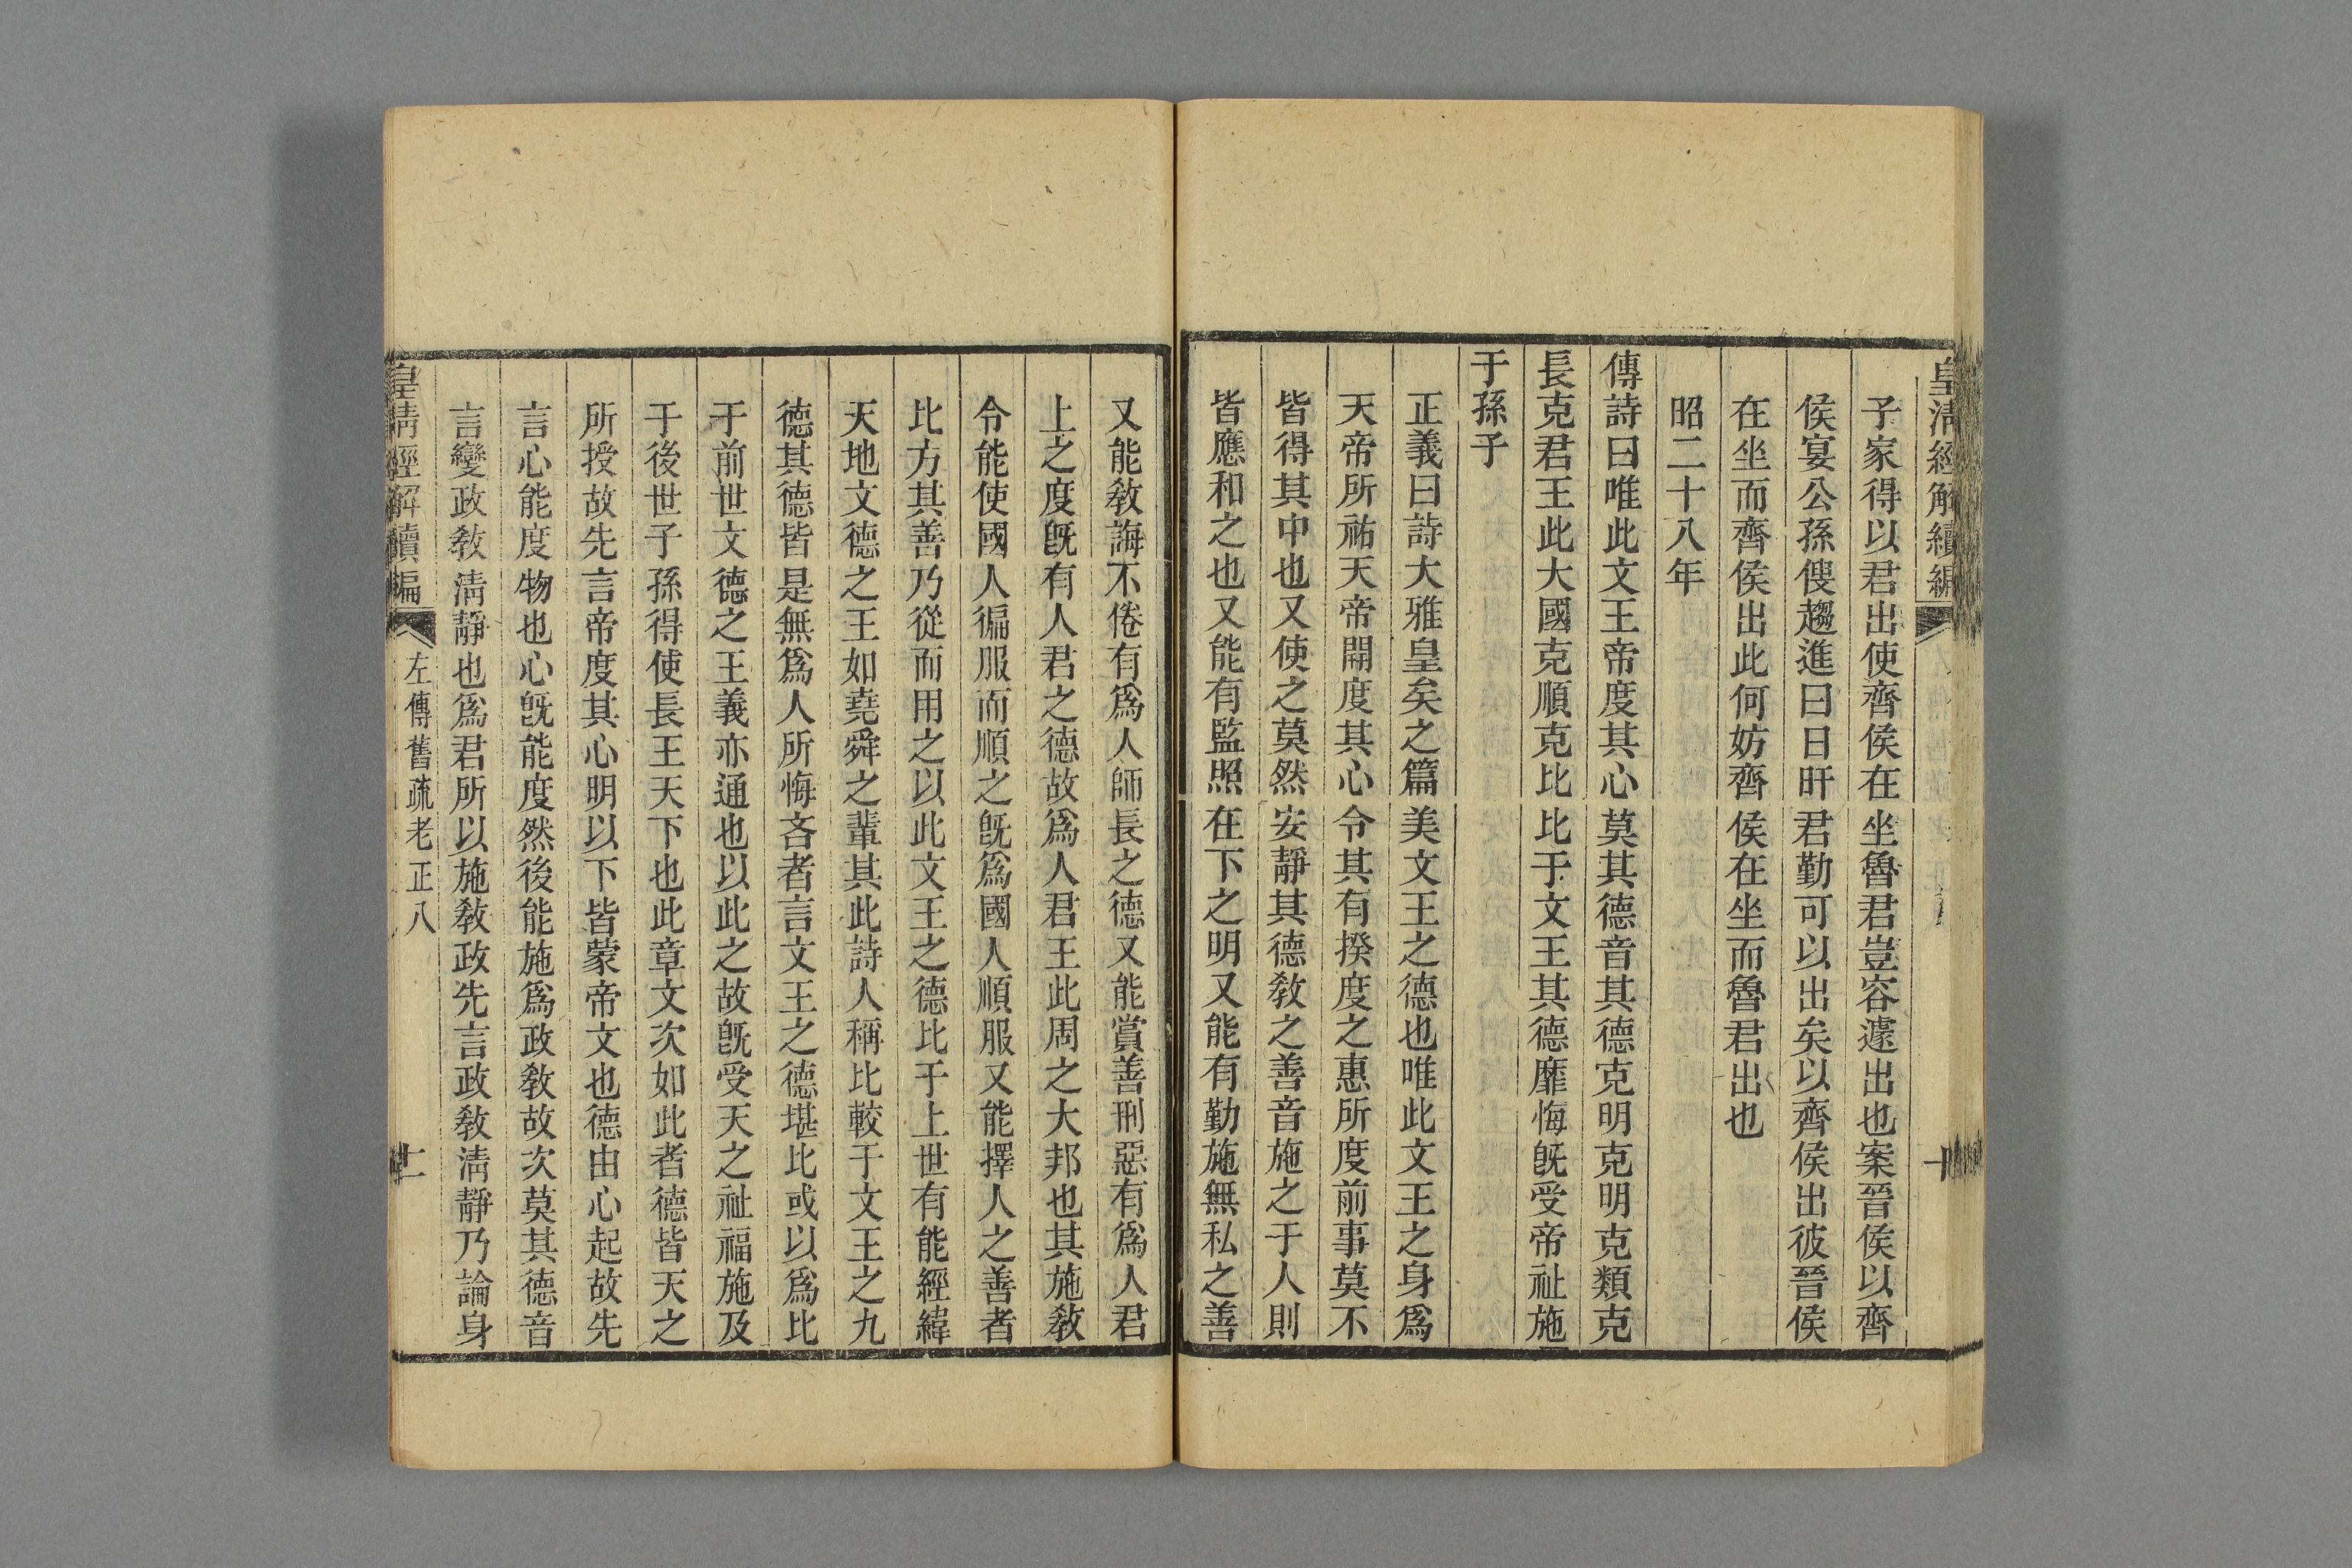 皇清經解續編
十
子家得以君出使齊侯在坐魯君豈容遽出也案晉侯以齊
侯宴公孫傁趨進曰日旰君勤可以出矣以齊侯出彼晉侯
在坐而齊侯出此何妨齊侯在坐而魯君出也
昭二十八年
傳詩曰唯此文王帝度其心莫其德音其德克明克明克類克
長克君王此大國克順克比比于文王其德靡悔旣受帝祉施
于孫子
正義曰詩大雅皇矣之篇美文王之德也唯此文王之身爲
天帝所祐天帝開度其心令其有揆度之惠所度前事莫不
皆得其中也又使之莫然安靜其德敎之善音施之于人則
皆應和之也又能有監照在下之明又能有勤施無私之善
又能敎誨不倦有爲人師長之德又能賞善刑惡有爲人君
上之度旣有人君之德故爲人君王此周之大邦也其施敎
令能使國人徧服而順之旣爲國人順服又能擇人之善者
比方其善乃從而用之以此文王之德比于上世有能經緯
天地文德之王如堯舜之輩其此詩人稱比較于文王之九
德其德皆是無爲人所悔吝者言文王之德堪比或以爲比
于前世文德之王義亦通也以此之故旣受天之祉福施及
于後世子孫得使長王天下也此章文次如此者德皆天之
所授故先言帝度其心明以下皆蒙帝文也德由心起故先
言心能度物也心旣能度然後能施爲政敎故次莫其德音
言變政敎淸靜也爲君所以施敎政先言政敎淸靜乃論身
皇清經解續編
左傳舊疏老正八
十二